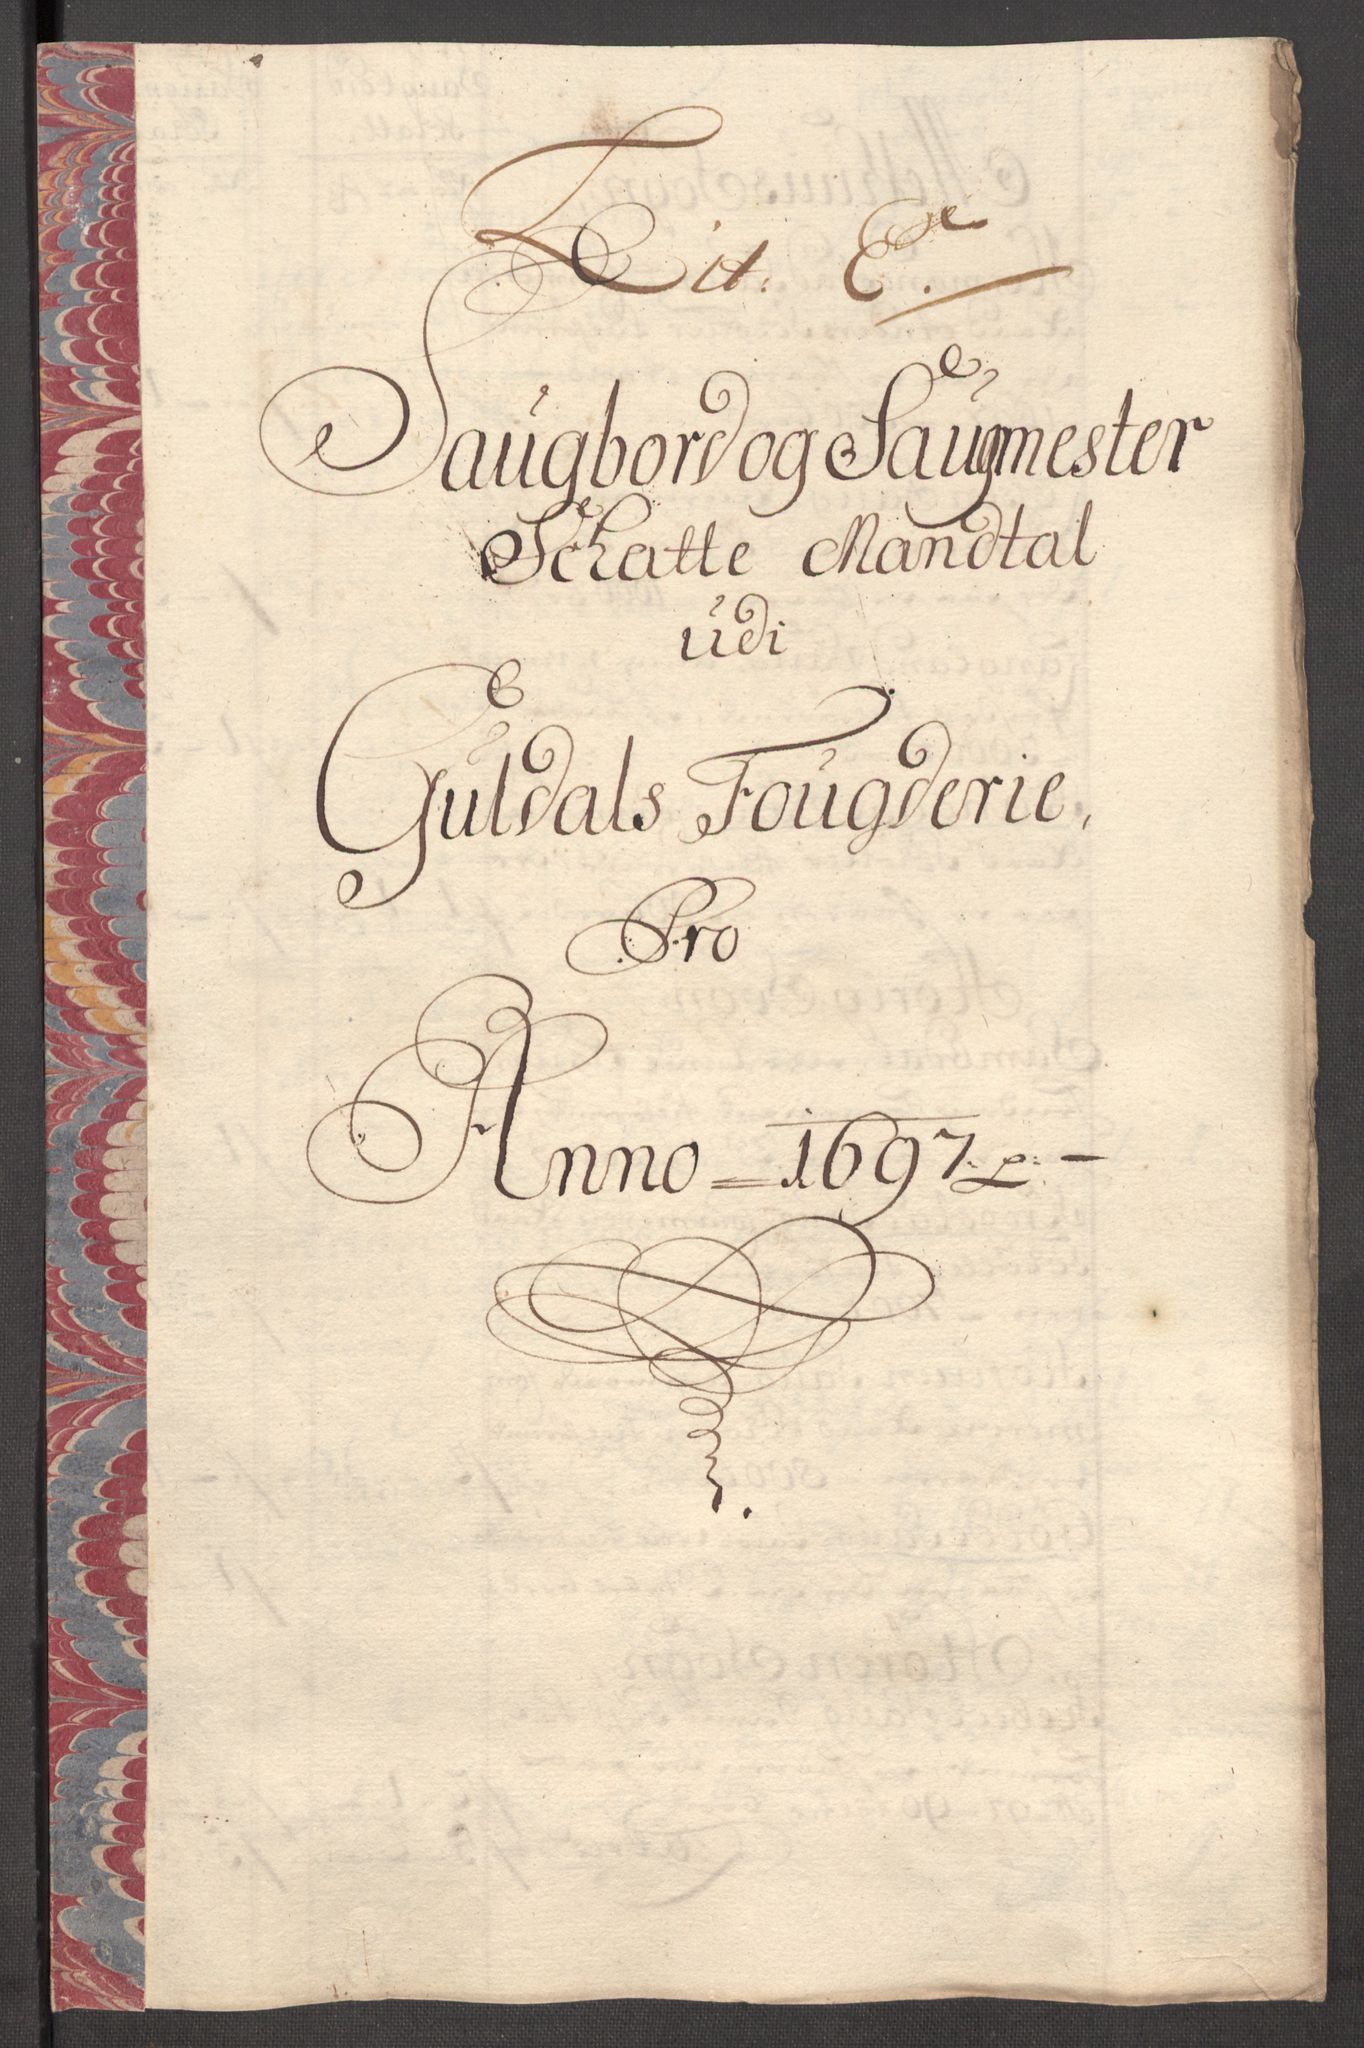 Lit. E.
Saugbord og Saugmester
Schatte Mandtal
udi
Guldals Fougderie,
Pro
Anno = 1697 –